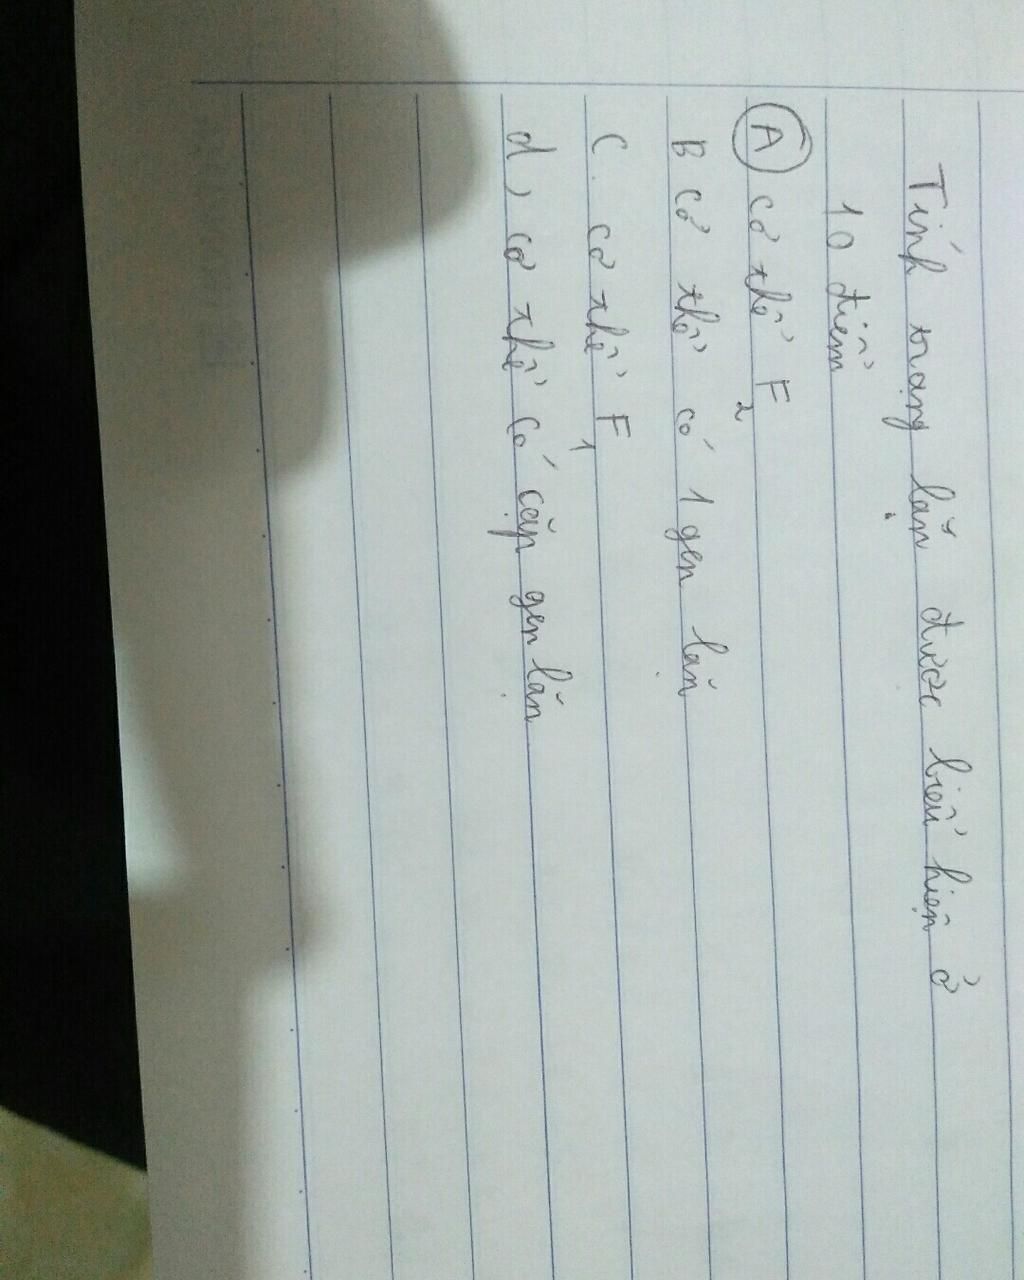 Tính trạng lặn được biểu hiện ở
10 điểm
A cơ thể F2
B cơ thể có 1 gen lặn
C. cơ thể F1
d, cơ thể có cặp gen lặn